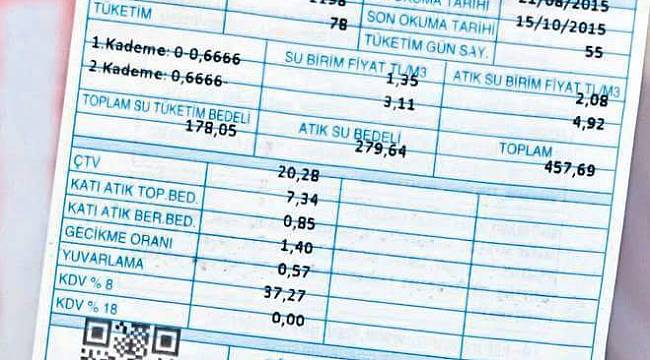 OKUMA TARİHİ 21/08/2015
TÜKETİM 78
SON OKUMA TARİHİ 15/10/2015
TÜKETİM GÜN SAY. 55
1.Kademe: 0-0,6666
2.Kademe: 0,6666-
SU BİRİM FİYAT TL/M3
1,35
3,11
ATIK SU BİRİM FİYAT TL/M3
2,08
4,92
TOPLAM SU TÜKETİM BEDELİ
178,05
ATIK SU BEDELİ
279,64
TOPLAM
457,69
ÇTV 20,28
KATI ATIK TOP.BED. 7,34
KATI ATIK BER.BED. 0,85
GECİKME ORANI 1,40
YUVARLAMA 0,57
KDV % 8 37,27
KDV % 18 0,00